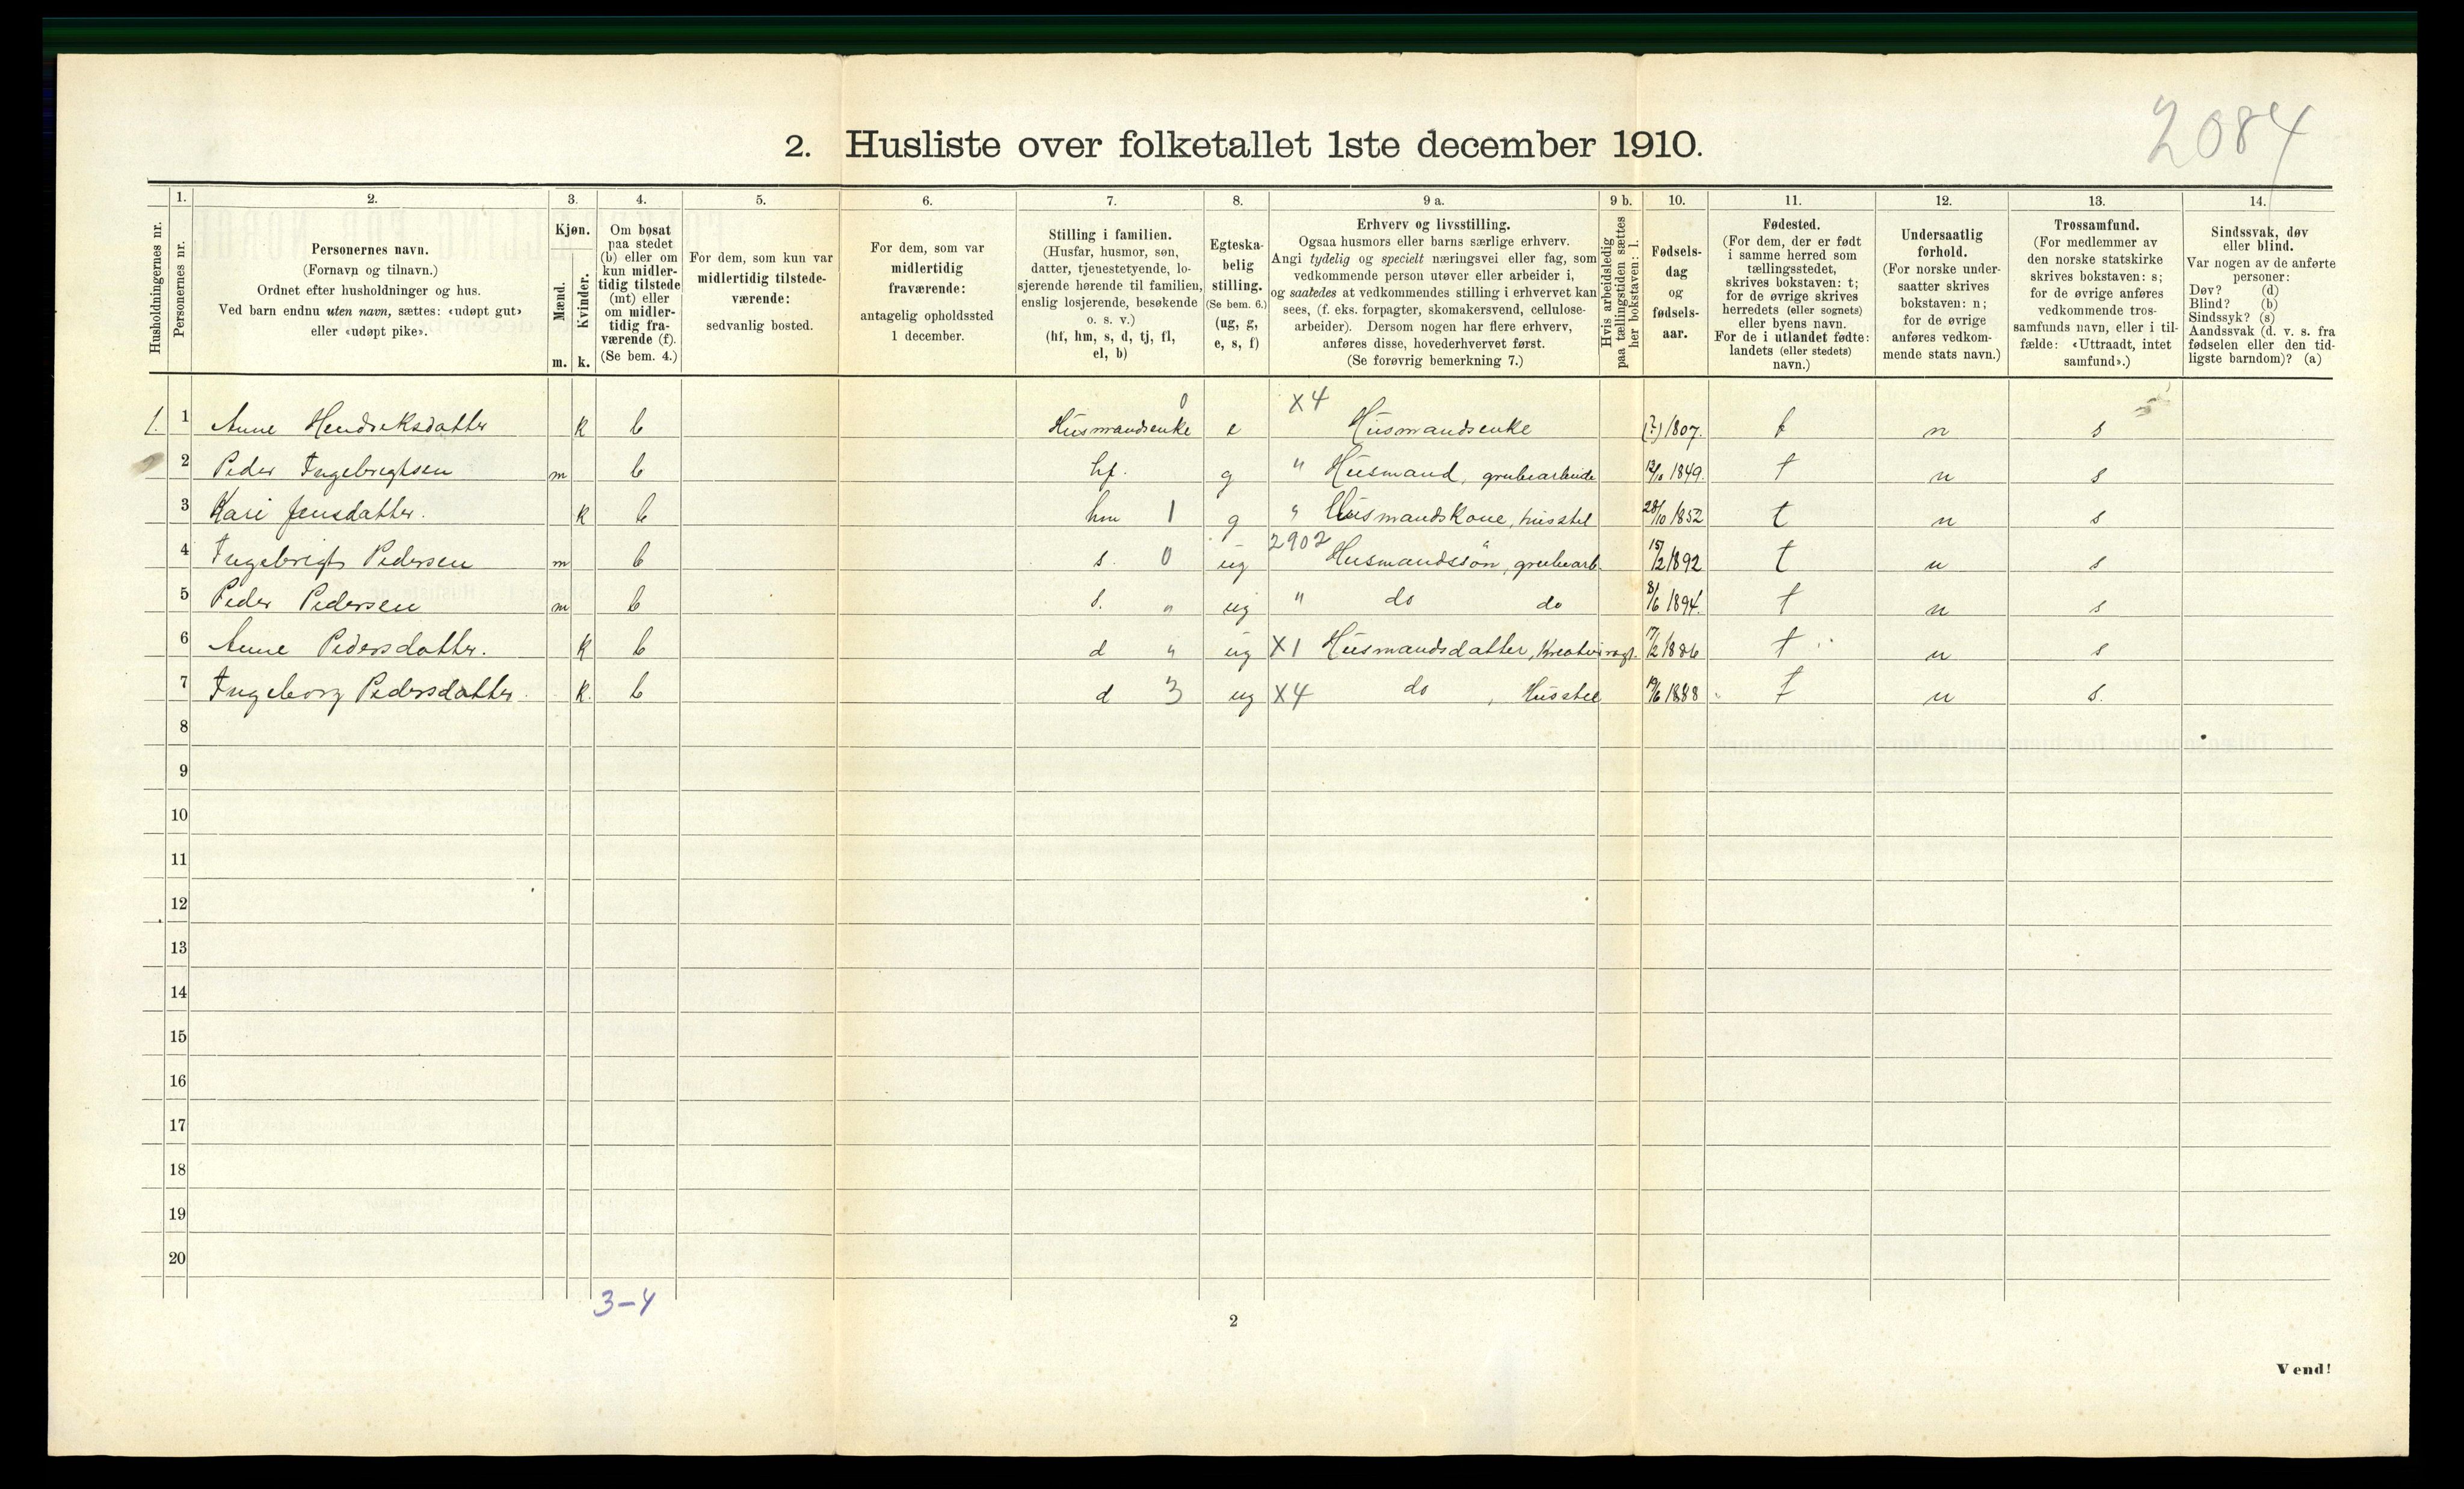 2084
2. Husliste over folketallet 1ste december 1910.
Husholdningernes nr.
1.
Personernes nr.
2.
Personernes navn.
(Fornavn og tilnavn.)
Ordnet efter husholdninger og hus.
Ved barn endnu uten navn, sættes: «udøpt gut»
eller «udøpt pike».
3.
Kjøn.
Mænd.
Kvinder.
m. k.
4.
Om bosat
paa stedet
(b) eller om
kun midler-
tidig tilstede
(mt) eller
om midler-
tidig fra-
værende (f).
(Se bem. 4.)
5.
For dem, som kun var
midlertidig tilstede-
værende:
sedvanlig bosted.
6.
For dem, som var
midlertidig
fraværende:
antagelig opholdssted
1 december.
7.
Stilling i familien.
(Husfar, husmor, søn,
datter, tjenestetyende, lo-
sjerende hørende til familien,
enslig losjerende, besøkende
o. s. v.)
(hf, hm, s, d, tj, fl,
el, b)
8.
Egteska-
belig
stilling.
(Se bem. 6.)
(ug, g,
e, s, f)
9 a.
Erhverv og livsstilling.
Ogsaa husmors eller barns særlige erhverv.
Angi tydelig og specielt næringsvei eller fag, som
vedkommende person utøver eller arbeider i,
og saaledes at vedkommendes stilling i erhvervet kan
sees, (f. eks. forpagter, skomakersvend, cellulose-
arbeider). Dersom nogen har flere erhverv,
anføres disse, hovederhvervet først.
(Se forøvrig bemerkning 7.)
9 b.
Hvis arbeidsledig
paa tællingstiden sættes
her bokstaven: l.
10.
Fødsels-
dag
og
fødsels-
aar.
11.
Fødested.
(For dem, der er født
i samme herred som
tællingsstedet,
skrives bokstaven: t;
for de øvrige skrives
herredets (eller sognets)
eller byens navn.
For de i utlandet fødte:
landets (eller stedets)
navn.)
12.
Undersaatlig
forhold.
(For norske under-
saatter skrives
bokstaven: n;
for de øvrige
anføres vedkom-
mende stats navn.)
13.
Trossamfund.
(For medlemmer av
den norske statskirke
skrives bokstaven: s;
for de øvrige anføres
vedkommende tros-
samfunds navn, eller i til-
fælde: «Uttraadt, intet
samfund».)
14.
Sindssvak, døv
eller blind.
Var nogen av de anførte
personer:
Døv? (d)
Blind? (b)
Sindssyk? (s)
Aandssvak (d. v. s. fra
fødselen eller den tid-
ligste barndom)? (a)
1. 1 Anne Hendriksdatter k b Husmandsenke 0 e X4 Husmandsenke (?) 1807. t n s
2 Peder Ingebrigtsen m b hf. g " Husmand, grubearbeide 12/10 1849. t n s
3 Kari Jensdatter. k b hm 1 g " Husmandskone, husstel 28/10 1852 t n s
4 Ingebrigt Pedersen m b s. 0 ug 2902 Husmandssøn, grubearb. 15/2 1892 t n s
5 Peder Pedersen m b s. " ug " do do 8/6 1894. t n s
6 Anne Pedersdatter. k b d " ug X1 Husmandsdatter, Kreaturrøgt. 17/2 1886 t n s
7 Ingeborg Pedersdatter. k. b d 3 ug X4 do, Husstel 19/6 1888 t n s.
8
9
10
11
12
13
14
15
16
17
18
19
20
3-4
2
Vend!